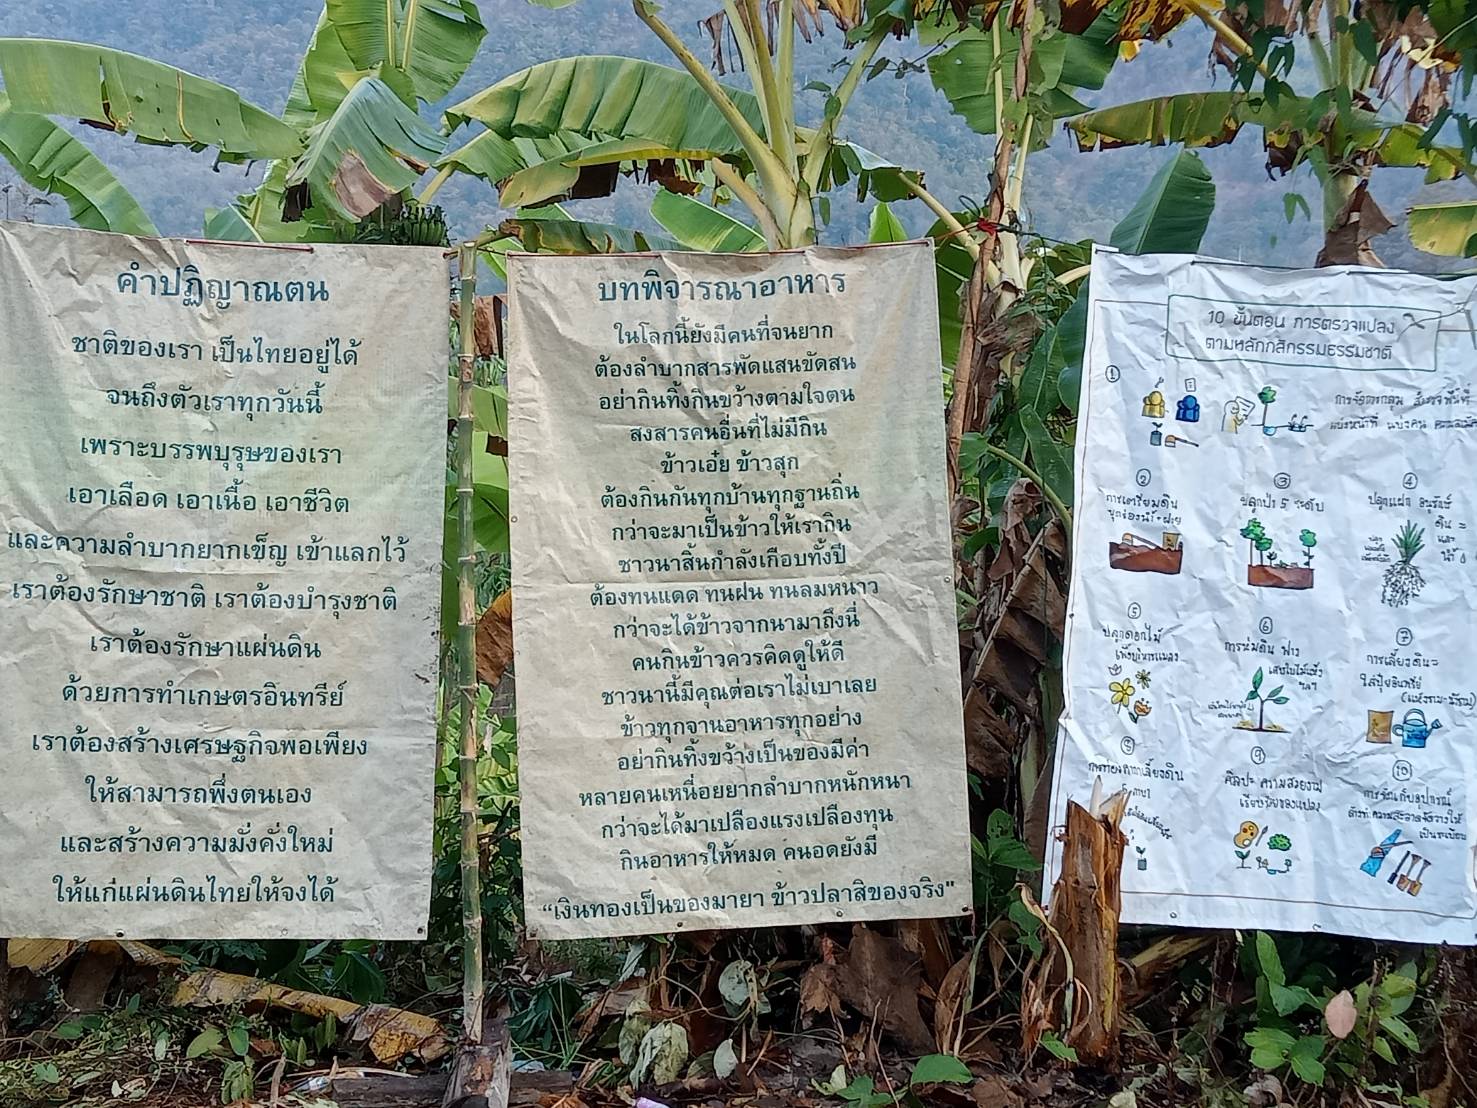 คำปฏิญาณตน
ชาติของเรา เป็นไทยอยู่ได้
จนถึงตัวเราทุกวันนี้
เพราะบรรพบุรุษของเรา
เอาเลือด เอาเนื้อ เอาชีวิต
และความลำบากยากเข็ญ เข้าแลกไว้
เราต้องรักษาชาติ เราต้องบำรุงชาติ
เราต้องรักษาแผ่นดิน
ด้วยการทำเกษตรอินทรีย์
เราต้องสร้างเศรษฐกิจพอเพียง
ให้สามารถพึ่งตนเอง
และสร้างความมั่งคั่งใหม่
ให้แก่แผ่นดินไทยให้จงได้
บทพิจารณาอาหาร
ในโลกนี้ยังมีคนที่จนยาก
ต้องลำบากสารพัดแสนขัดสน
อย่ากินทิ้งกินขว้างตามใจตน
สงสารคนอื่นที่ไม่มีกิน
ข้าวเอ๋ย ข้าวสุก
ต้องกินกันทุกบ้านทุกฐานถิ่น
กว่าจะมาเป็นข้าวให้เรากิน
ชาวนาสิ้นกำลังเกือบทั้งปี
ต้องทนแดด ทนฝน ทนลมหนาว
กว่าจะได้ข้าวจากนามาถึงนี่
คนกินข้าวควรคิดดูให้ดี
ชาวนานี้มีคุณต่อเราไม่เบาเลย
ข้าวทุกจานอาหารทุกอย่าง
อย่ากินทิ้งขว้างเป็นของมีค่า
หลายคนเหนื่อยยากลำบากหนักหนา
กว่าจะได้มาเปลืองแรงเปลืองทุน
กินอาหารให้หมด คนอดยังมี
“เงินทองเป็นของมายา ข้าวปลาสิของจริง"
10 ขั้นตอน การตรวจแปลง
ตามหลักกสิกรรมธรรมชาติ
①
การจัดกลุ่ม สำรวจพื้นที่
แบ่งหน้าที่ แบ่งคน
②
การเตรียมดิน
ขุดร่องน้ำ
③
ปลูกป่า 5 ระดับ
④
ปลูกแฝก อนุรักษ์
ดิน
และ
น้ำ
⑤
ปลูกดอกไม้
⑥
การห่มดิน ฟาง
เศษใบไม้แห้ง
⑦
การเลี้ยงดิน
ใส่ปุ๋ยอินทรีย์
⑧
⑨
ศิลปะ ความสวยงาม
เรียบร้อยของแปลง
⑩
การจัดเก็บอุปกรณ์
ล้างทำความสะอาดจัดวางให้
เป็นระเบียบ